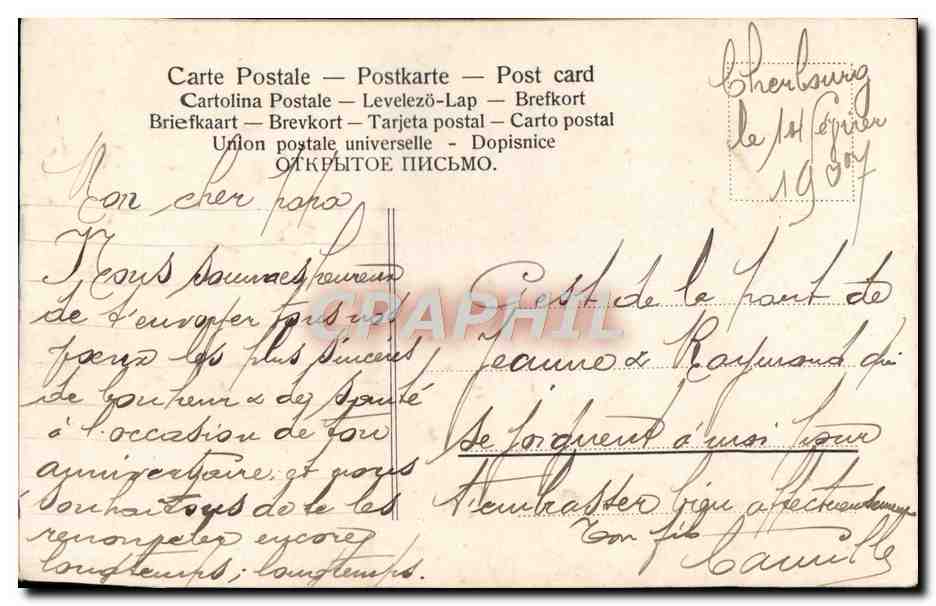 Carte Postale — Postkarte — Post card
Cartolina Postale — Levelezö-Lap — Brefkort
Briefkaart — Brevkort — Tarjeta postal — Carto postal
Union postale universelle - Dopisnice
ОТКРЫТОЕ ПИСЬМО.
Cherbourg
le 14 février
1907
Mon cher papa
Nous sommes heureux
de t'envoyer tous nos
vœux les plus sincères
de bonheur & de santé
à l'occasion de ton
anniversaire et nous
souhaitons de te les
renouveler encore
longtemps, longtemps.
C'est de la part de
Jeanne & Raymond qui
se joignent à moi pour
t'embrasser bien affectueusement
Ton fils
Camille
CRAPHIL